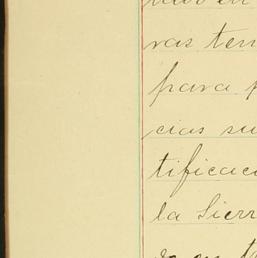 ras ten
para p
cias su
tificaci
la Sierr